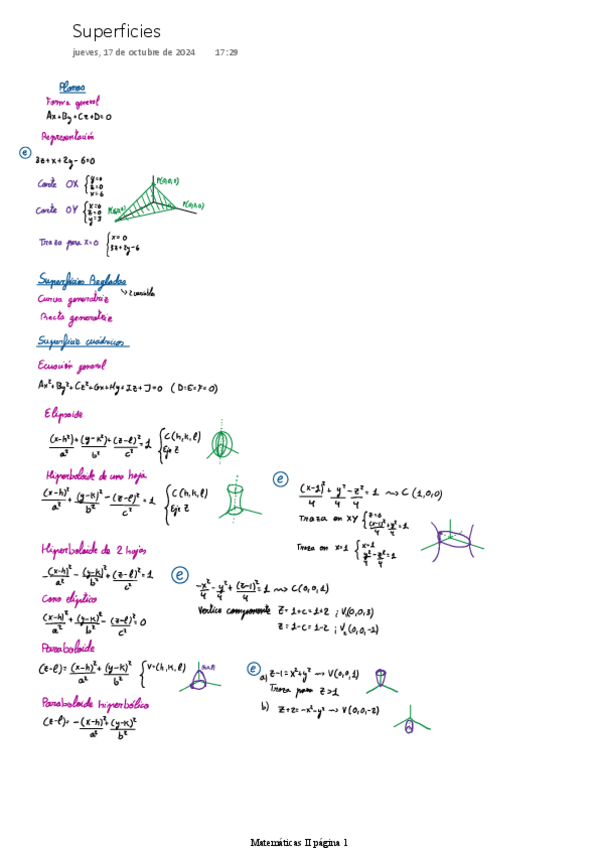 Superficies
jueves, 17 de octubre de 2024 17:29
Planos
Forma general
Ax+By+Cz+D=0
Representación
e
3z+x+2y-6=0
Corte OX { y=0 z=0 x=6
Corte OY { x=0 z=0 y=3
Traza para x=0 { x=0 3z+2y-6
Superficies Regladas
↳ 2 variables
Curva generatriz
Recta generatriz
Superficies cuádricas
Ecuación general
Ax²+By²+Cz²+Gx+Hy+Iz+J=0 (D=E=F=0)
Elipsoide
(x-h)²/a² + (y-k)²/b² + (z-l)²/c² = 1 { C(h,k,l) Eje Z
Hiperboloide de una hoja
(x-h)²/a² + (y-k)²/b² - (z-l)²/c² = 1 { C(h,k,l) Eje Z
e
(x-1)²/4 + y²/4 - z²/4 = 1 ⇝ C(1,0,0)
Traza en XY { z=0 (x-1)²/4 + y²/4 = 1
Traza en x=1 { x=1 y²/4 - z²/4 = 1
Hiperboloide de 2 hojas
-(x-h)²/a² - (y-k)²/b² + (z-l)²/c² = 1
e
-x²/4 - y²/4 + (z-1)²/4 = 1 ⇝ C(0,0,1)
Vertice componente z=1+c=1+2 ; V(0,0,3)
z=1-c=1-2 ; V₂(0,0,-1)
Cono elíptico
(x-h)²/a² + (y-k)²/b² - (z-l)²/c² = 0
Paraboloide
(z-l) = (x-h)²/a² + (y-k)²/b² { V=(h,k,l)
e
a) z-1=x²+y² ⇝ V(0,0,1)
Traza para z>1
b) z+2=-x²-y² ⇝ V(0,0,-2)
Paraboloide hiperbólico
(z-l) = -(x-h)²/a² + (y-k)²/b²
Matemáticas II página 1